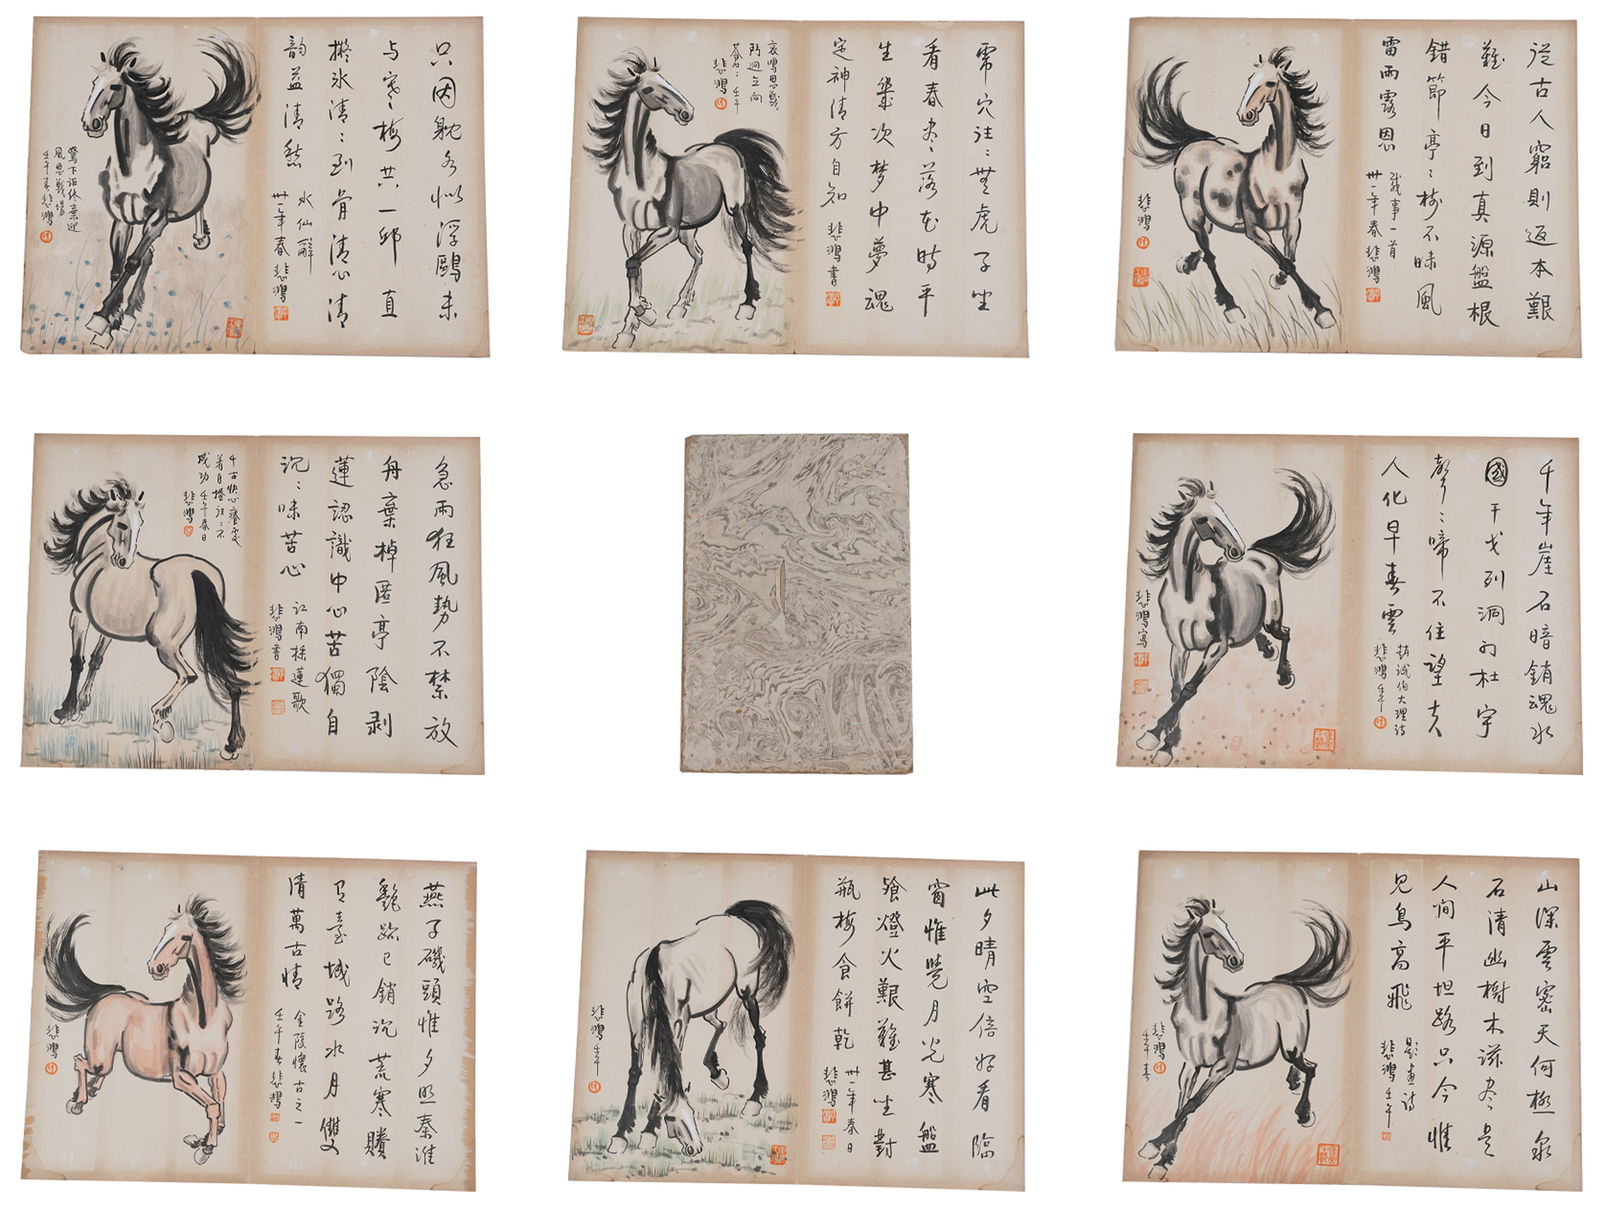 駑下詎終棄迎
風思戰場
壬午春悲鴻
只因耽冬似浮鷗未
与寒梅共一邱直
擬冰清清到骨清心清
韵益清愁
水仙辭
卅一年春悲鴻
哀鳴思戰
鬥迥立向
蒼蒼壬午
悲鴻
看春去落花時平
生幾次夢中夢魂
定神清方自知
悲鴻書
悲鴻
從古人窮則返本艱
難今日到真源盤根
錯節亭亭樹不昧風
雷雨露恩
卅一年春悲鴻
千古快心癢處
成功壬午春日
悲鴻
急雨狂風勢不禁放
舟棄棹匿亭陰剥
蓮認識中心苦獨自
沉沉味苦心
江南採蓮歌
悲鴻書
悲鴻寫
千年崖石暗銷魂水
國干戈列洞門杜宇
聲聲啼不住望夫
人化早春雲
悲鴻壬午
悲鴻
燕子磯頭惟夕照秦淮
艷跡已銷沉荒寒賸
有臺城路水月雙
清萬古情
金陵懷古之一
壬午春悲鴻
悲鴻壬午
此夕晴空倍好看臨
窗惟覺月光寒盤
飧燈火艱難甚坐對
瓶梅食餅乾
卅一年春日
悲鴻
悲鴻
壬午春
山深雲密天何極泉
石清幽樹木滋盡是
人間平坦路只今惟
見鳥高飛
題畫詩
悲鴻壬午